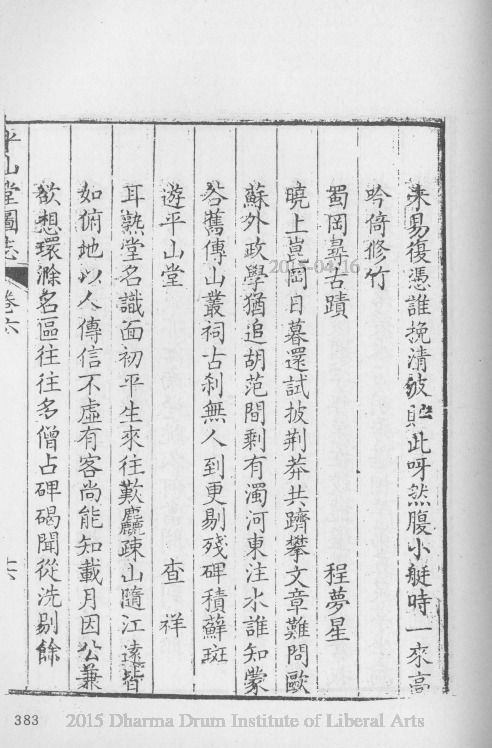 來易復憑誰挽清彼照此呀然腹小艇時一來高
吟倚修竹
蜀岡尋古蹟 程夢星
曉上崑岡日暮還試披荆莽共躋攀文章難問歐
蘇外政學猶追胡范間剩有濁河東注水誰知蒙
谷舊傳山叢祠古刹無人到更剔殘碑積蘚斑
遊平山堂 查祥
耳熱堂名識面初平生來往歎麤疎山隨江遠皆
如俯地以人傳信不虛有客尚能知載月因公兼
欲想環滁名區往往多僧占碑碣聞從洗剔餘
平山堂圖志 卷六
383
2015-04-16
2015 Dharma Drum Institute of Liberal Arts